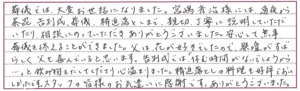 葬儀では、大変お世話になりました。宮嶋者皆様には、通夜から
茶毘、告別式、葬儀、精進落としまで、親切、丁寧に説明していただ
いたり、相談にのっていただきありがとうございました。安心して無事
葬儀を終えることができました。父は花が好きでしたので、祭壇がすば
らしく父も喜んでいると思います。告別式では「休む時間がないでしょうから
…」と飲み物をだしてくださり心温まりました。精進落としの料理も好評でおい
しかったです。スタッフの皆様のお気遣いに感謝です。ありがとうございました。